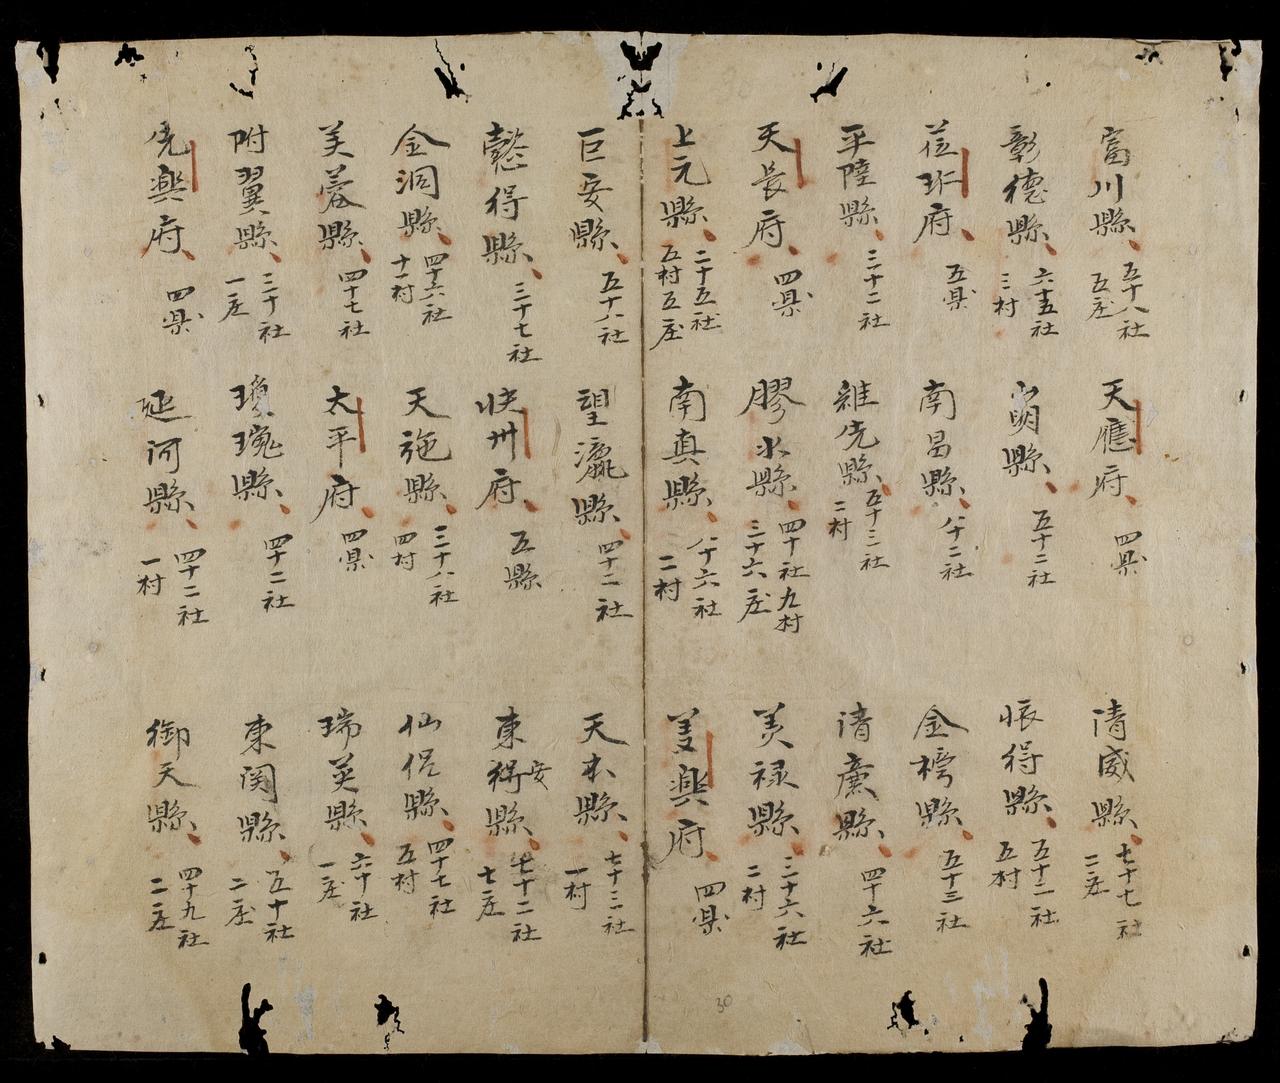 富川縣 五十八社 五庄
天應府 四県
清威縣 七十七社 二庄
彰德縣 六十五社 三村
明縣 五十二社
得縣 五十二社 五村
莅府 五県
南昌縣 八十二社
金榜縣 五十三社
平陸縣 三十二社
維先縣 五十三社 二村
清廉縣 四十六社
天長府 四県
膠水縣 四十社九村 三十六庄
美禄縣 三十六社 二村
上元縣 二十五社 五村五庄
南真縣 八十六社 二村
義興府 四県
巨安縣 五十八社
望瀛縣 四十二社
天本縣 七十二社 一村
懿得縣 三十七社
快州府 五縣
東得安縣 七十二社 七庄
金洞縣 四十六社 十一村
天施縣 三十八社 四村
仙侣縣 四十七社 五村
芙蓉縣 四十七社
太平府 四県
瑞英縣 六十社 一庄
附翼縣 三十社 一庄
瓊瑰縣 四十二社
東関縣 五十社 二庄
先興府 四県
延河縣 四十二社 一村
御天縣 四十九社 二庄
30